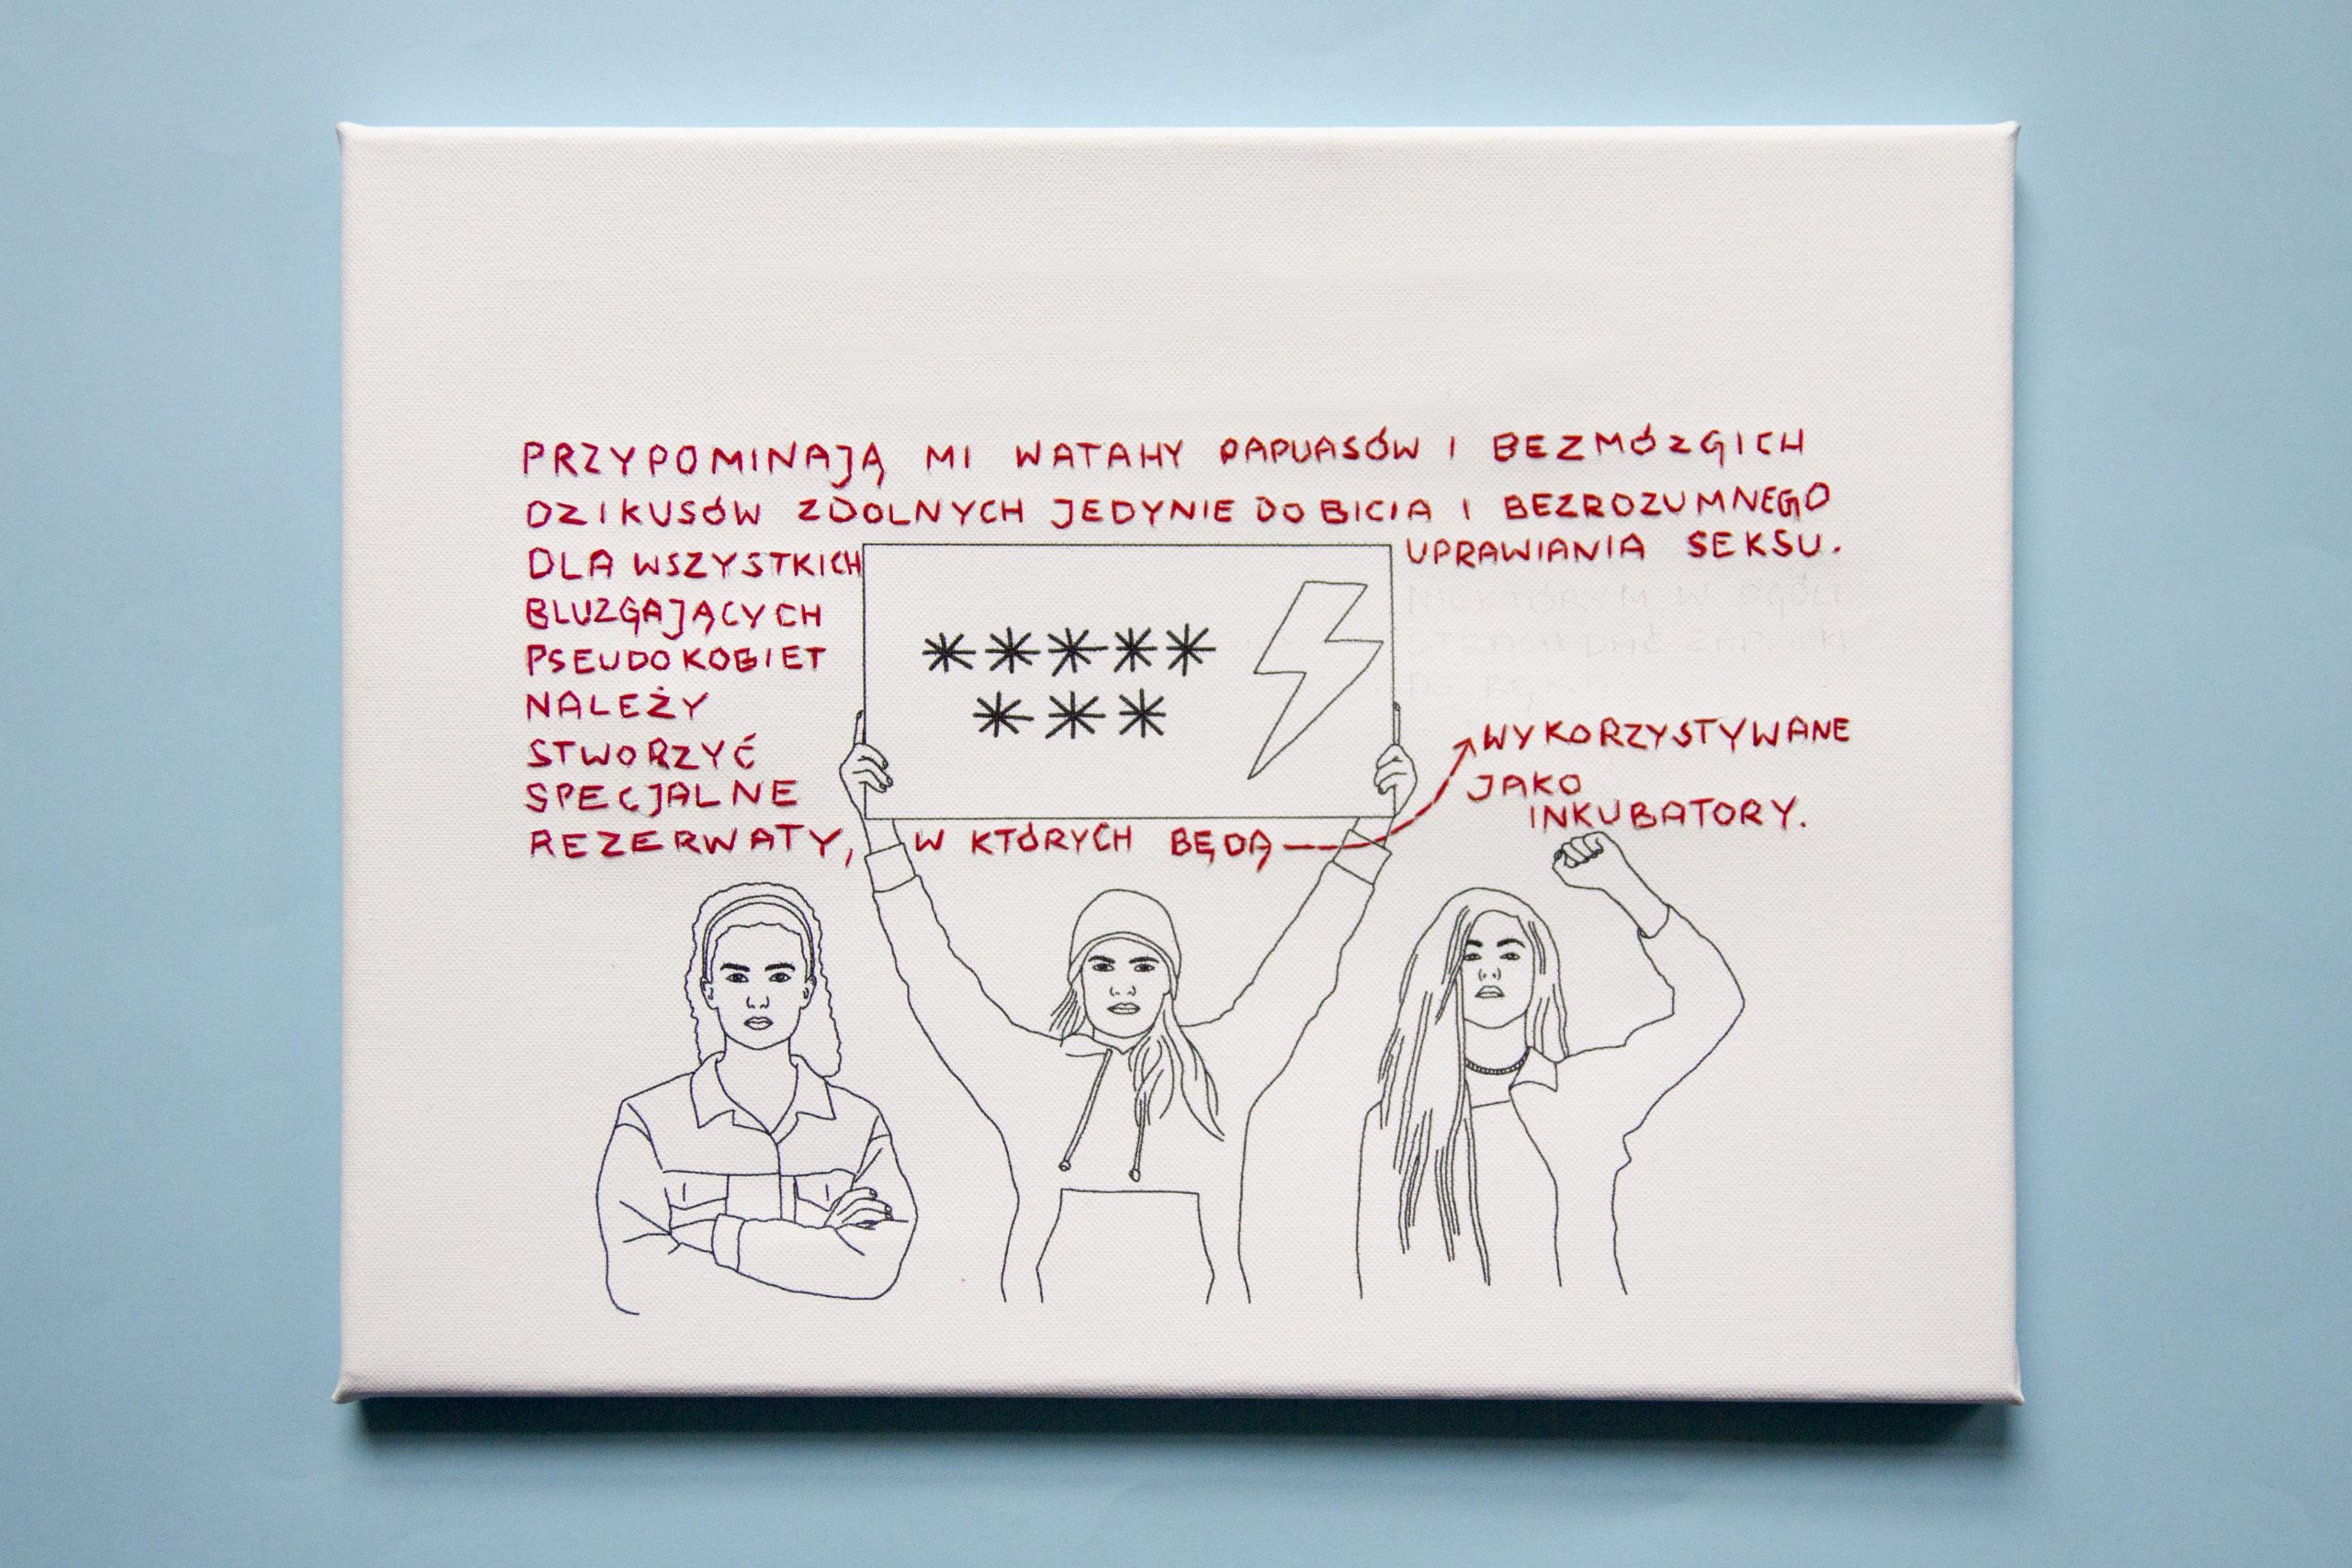 PRZYPOMINAJĄ MI WATAHY PAPUASÓW I BEZMÓZGICH
DZIKUSÓW ZDOLNYCH JEDYNIE DO BICIA I BEZROZUMNEGO
UPRAWIANIA SEKSU.
DLA WSZYSTKICH
BLUZGAJĄCYCH
PSEUDOKOBIET
NALEŻY
STWORZYĆ
SPECJALNE
REZERWATY, W KTÓRYCH BĘDĄ
WYKORZYSTYWANE
JAKO
INKUBATORY.
*****
***